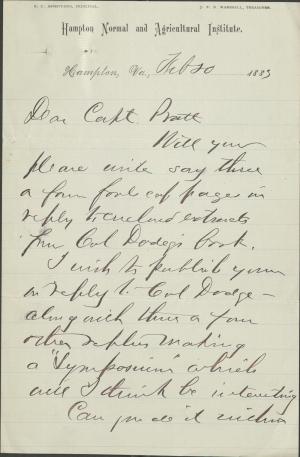 S. C. ARMSTRONG, PRINCIPAL. J. F. B. MARSHALL, TREASURER.
Hampton Normal and Agricultural Institute.
Hampton, Va., Feb 20 1883
Dear Capt Pratt
Will you
please write say three
or four fools cap pages in
reply to enclosed extracts
from Col Dodge's book.
I wish to publish yours
in reply to Col Dodge –
along with three or four
other replies making
a "Symposium" which
will I think be interesting
Can you do it within